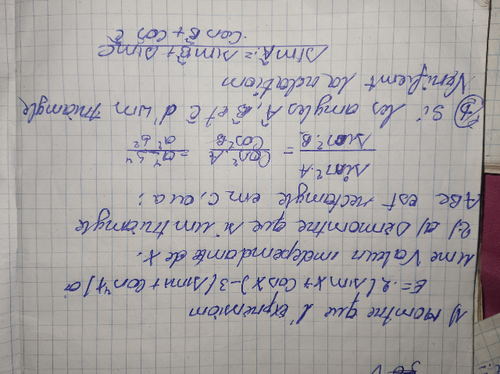 1) Montre que l'expression
E=2(sinx+cosx)-3(sinx+cos⁴x) a
une Valeur independante de x.
2) a) Démontre que si un triangle
ABC est rectangle en C, on a :
sin².A / sin².B = cos².A / cos².B = a²-b⁴ / a²b²
b) Si les angles Â, B̂ et Ĉ d'un triangle
Verifient la relation
sin  = sinB̂ + sinĈ / cosB̂ + cosĈ